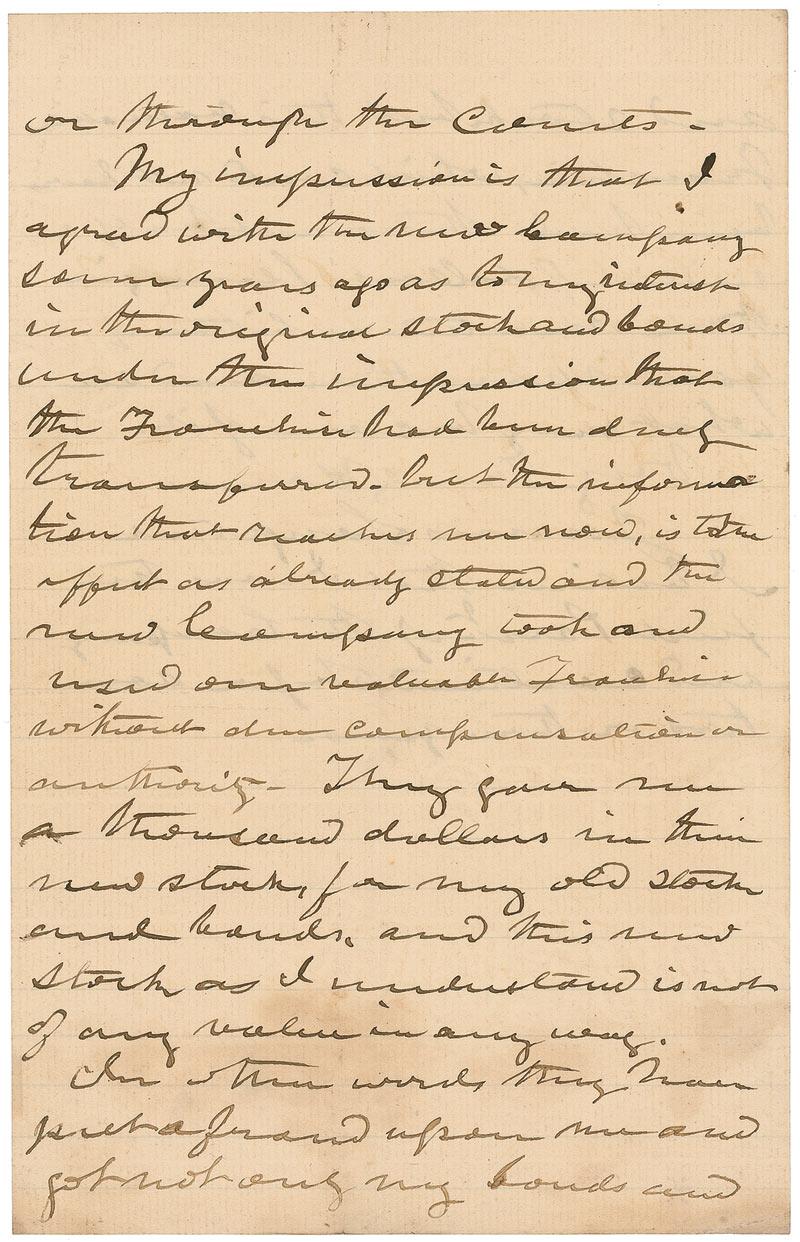 or through the Courts -
My impression is that I
agreed with the new Company
some years ago as to my interest
in the original stock and bonds
under the impression that
the Franchise had been duly
transferred - but the informa
tion that reaches me now, is to the
effect as already stated and the
new Company took and
used our valuable Franchise
without due compensation or
authority - They gave me
a thousand dollars in their
new stock, for my old stock
and bonds, and this new
stock as I understand is not
of any value in any way.
In other words they have
put a fraud upon me and
got not only my bonds and